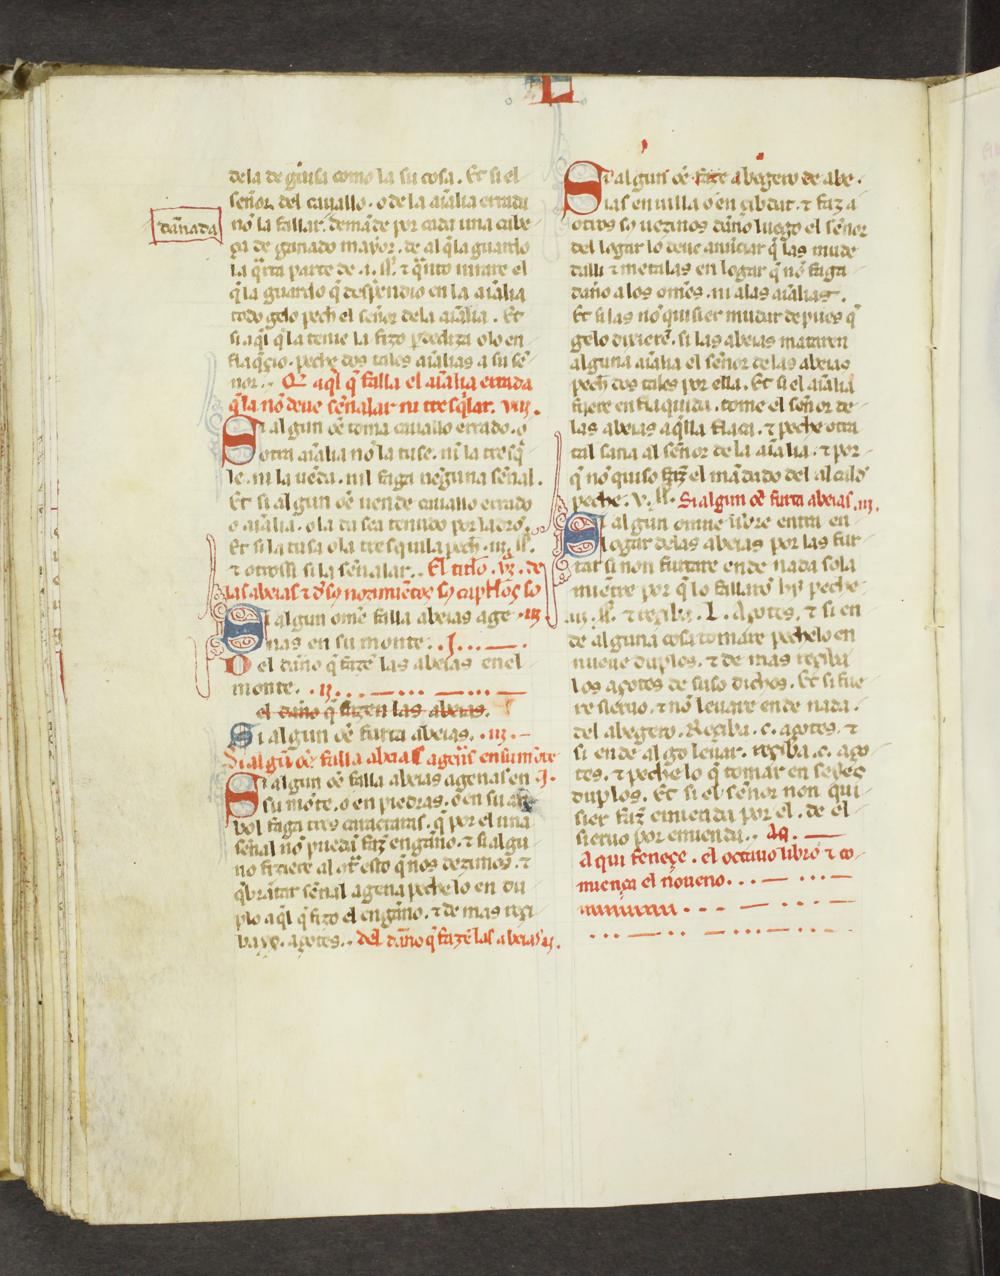 L
dela de guisa como la su cosa. Et si el
señor del cauallo. o de la aĩalia errada
dãnada
nõ la fallar. demãde por cada una cabe
ça de ganado mayor. de al q̃ la guardo
la q̃rta parte de .i. ss. ⁊ q̃nto iurare el
q̃ la guardo q̃ despẽdio en la aĩalia
todo gelo pech el señor dela aĩalia. Et
si aq̃l q̃ la tenie la fizo
peche dos tales aĩalias a su se
ñor. Q aq̃l q̃ falla el aĩalia errada
q̃ la nõ deue señalar ni tresq̃lar. viii.
Si algun oẽ toma cauallo errado. o
otra aĩalia nõ la tuse. nĩ la tresq̃
le. ni la uẽda. nil faga neguna señal.
Et si algun oẽ uende cauallo errado
o aĩalia. o la da sea tenudo por ladrõ.
Et si la tusa o la tresquila pech .iii. ss.
⁊ otrossi si la señalar. El titlo .vi. de
las abeias ⁊ d̃ so nozimiẽtos so capitlos so
Si algun omẽ falla abeias age .iii.
nas en su monte. .I.
O el dãno q̃ fazẽ las abeias en el
monte. .ii.
el daño q̃ fazen las abeias.
Si algun oẽ furta abeias. .iii.
Si algũ oẽ falla abeias agẽas en su mõte
Si algun oẽ falla abeias agenas en .i.
su mõte. o en piedras. o en su ar
bol faga tres caractaras. q̃ por el una
señal nõ puedã faz̃ engãno. ⁊ si algu
no fiziere al q̃ esto q̃ nos dezimos. ⁊
q̃brãtar señal agena peche lo en du
plo a aq̃l q̃ fizo el engãno. ⁊ de mas reçi
ba .c. açotes. del dãno q̃ fazẽ las abeias .ii.
Si algun oẽ faze abegero de abe
ias en uilla o en çibdat. ⁊ faz a
otros so uezinos dãno luego el señor
del logar lo deue anũciar q̃ las mude
dalli ⁊ metalas en logar q̃ nõ faga
daño a los omẽs. ni a las aĩalias.
Et si las nõ quisier mudar depues q̃
gelo dixierẽ. si las abeias mataren
alguna aĩalia el señor de las abeias
pech dos tales por ella. Et si el aĩalia
fuere enflaquida. tome el señor de
las abeias aq̃lla flaca. ⁊ peche otra
tal sana al señor de la aĩalia. ⁊ por
q̃ nõ quiso faz̃ el mãdado del alcalde
peche .v. ss. Si algun oẽ furta abeias .iii.
Si algun omne libre entra en
logar delas abeias por las fur
tar si non furtare ende nada sola
miẽtre por q̃ lo fallarõ hy peche
.iii. ss. ⁊ reçiba .L. Açotes. ⁊ si en
de alguna cosa tomare pechelo en
nueue duplos. ⁊ de mas reçiba
los açotes de suso dichos. Et si fue
re sieruo. ⁊ nõ leuare ende nada.
del abegero. Reçiba .c. açotes. ⁊
si ende algo leuar. reçiba .c. aço
tes. ⁊ peche lo q̃ tomar en seyes
duplos. Et si el señor non qui
sier faz̃ emienda por el. de el
sieruo por emienda.
Aqui feneçe. el octauo libro ⁊ co
miença el noueno.